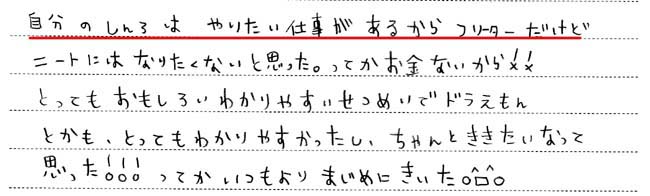 自分のしんろは やりたい仕事が あるから フリーターだけど
ニートには なりたくないと思った。ってか お金 ないから!!
とっても おもしろい わかりやすい せつめいで ドラえもん
とかも、とっても わかり やすかったし、ちゃんと ききたいなって
思った!!! ってか いつもより まじめに きいた。^□^。